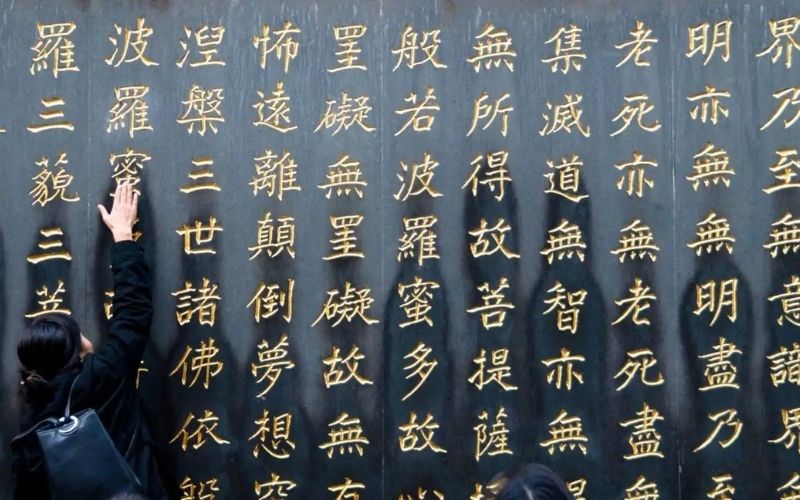 界乃至無意識界
明亦無無明盡乃
老死亦無老死盡無
集滅道無智亦無
無所得故菩提薩
般若波羅蜜多故心
罣礙無罣礙故無有
怖遠離顛倒夢想究
涅槃三世諸佛依般
波羅
羅三藐三菩